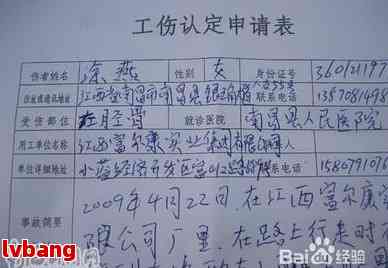 工伤认定申请表
伤者姓名 涂燕 性别 女 身份证号 36012197
住址或通讯地址 江西省南昌市南昌县 联系电话 1357081498
受伤部位 左胫骨 就诊医院 南昌县人民医院
用工单位名称 江西富尔康实业集团有限公司
单位详细地址 小蓝经济开发区富山 联系电话 1580791016
事故简要 2009年4月22日,在江西富尔康实
限公司厂里,在路上行走时
lvbang
Bai 百科